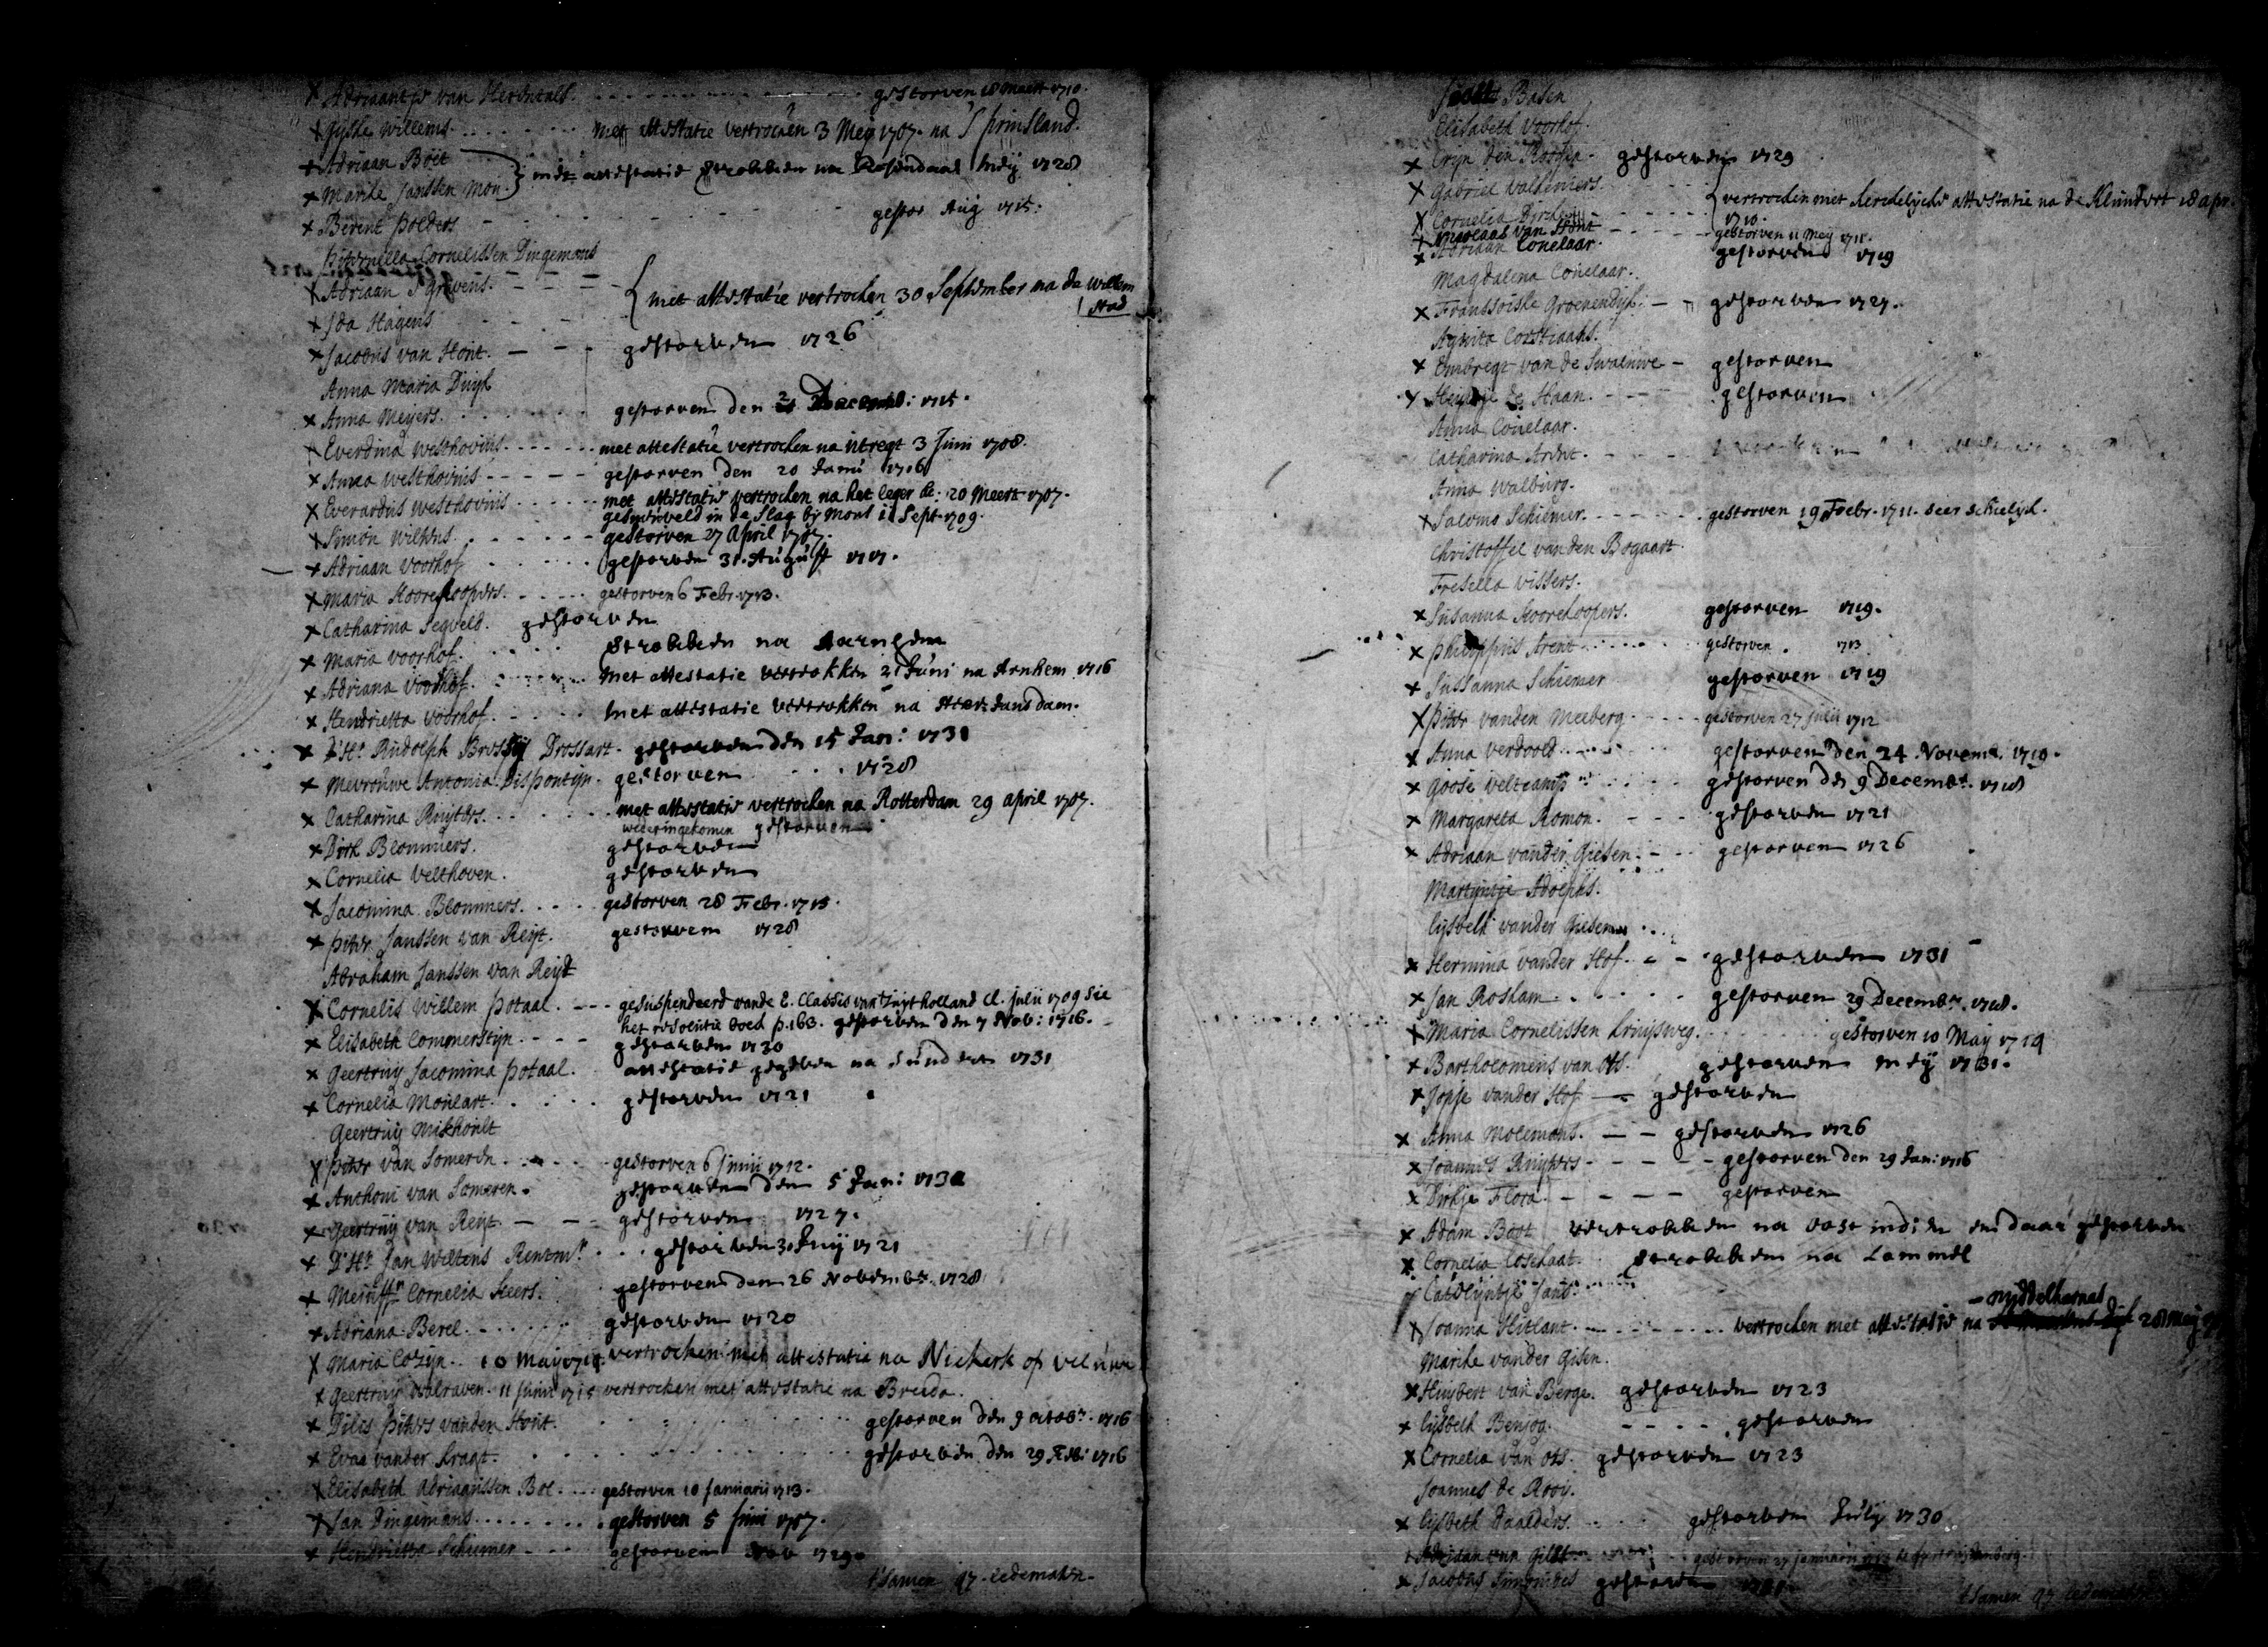 x Adriaantje van Herentals. gestorven 18 maert 1710.
x Gijske Willems. met attestatie vertrocken 3 Meij 1707. na S' prinsland.
x Adriaan Boet
x Marike Janssen Mon. } met attestatie vertrokken na Rosendaal Meij 1728
x Berent poelders gestor Aug 1715.
piternella Cornelissen Dingemans
x Adriaan S'gravens.
x Ida Hagens { met attestatie vertrocken 30 September na de Willem
stad
x Jacobus van Hout. gestorven 1726
Anna Maria Duijk
x Anna Meijers. gestorven den 2 Decemb: 1715.
x Everdina Westhovius. met attestatie vertrocken na utregt 3 Junii 1708.
x Anna Westhovius gestorven den 20 Janu 1716
x Everardus Westhovius met attestatie vertrocken na het leger de: 20 Meert 1707.
gesneuveld in de Slag bij Mons 11 Sept. 1709.
x Simon Willems. gestorven 27 April 1707.
x Adriaan Voorhof gestorven 31. August 1717.
x Maria Koorekoopers. gestorven 6 Febr. 1713.
x Catharina Segveld. gestorven
x Maria Voorhof. vertrokken na Aernhem
x Adriana Voorhof. Met attestatie vertrokken 21 Juni na Arnhem 1716
x Hendrietta Voorhof. Met attestatie vertrokken na
x D'Hr. Rudolph Drossart. gestorven den 15 Jan: 1731
x Mevrouwe Antonia Dispontijn. gestorven 1728
x Catharina Ruijters. met attestatie vertrocken na Rotterdam 29 april 1707.
wederingekomen gestorven
x Dirk Blommers. gestorven
x Cornelia Velthoven. gestorven
x Jacomina Blommers. gestorven 28 Febr. 1715.
x piter Janssen van Reijt. gestorven 1728
Abraham Janssen van Reijt
x Cornelis Willem potaal. gesuspendeerd vande E. Classis van Zuijtholland d. julii 1709 sie
het resolutie boek p. 163. gestorven den 7 Nob: 1716.
x Elisabeth Commerstijn gestorven 1730
x Geertruij Jacomina potaal. attestatie gegeven na Sundert 1731
x Cornelia Moulart. gestorven 1721
Geertruij Mikhoult
x piter van Someren gestorven 6 junii 1712.
x Anthoni van Someren. gestorven den 5 Jan: 173
x Geertruij van Reijt. gestorven 1727.
x D'Hr. Jan Weltens Rentmr. gestorven 30 1721
x Meiuffr. Cornelia Keers. gestorven den 26 Novembr. 1728
x Adriana Berel. gestorven 1720
x Maria Cozijn. 10 Maij vertrocken met attestatie na Niekerk op veluwe
x Geertruij Walraven. 11 Junii 1715 vertrocken met attestatie na Breda.
x Dilis piters vanden Hout. gestorven den 9 octobr. 1716
x Eva vander Kragt. gestorven den 29 Feb: 1716
x Elisabeth Adriaanssen Bol. gestorven 10 Januarii 1713.
x Jan Dingemans. gestorven 5 Junii 1707.
x Hendrietta Schiemer gestorven Nov 1729.
t'samen 97. ledematen.
Basen
Elisabeth Voorhof.
x Crijn den Rosser. gestorven 1729
x Gabriel Valdeniers.
x Cornelia { vertrocken met kerckelijcke attestatie na de Klundert 18 apr.
1710.
x Nicolaas van Hout gestorven 11 Meij
x Adriaan Conelaar. gestorven 1719
Magdalena Conelaar.
x Franssoiske Groenendijk. gestorven 1727.
Agnita Corstiaans.
x Embregt van de Swaluwe gestorven
x de Haan. gestorven
Anna Conelaar.
Catharina Arent.
Anna Walburg.
x Salomo Schiemer. gestorven 19 Febr. 1711. seer schielijk.
Christoffel vanden Bogaart.
Fresella Vissers.
x Susanna Koorekoopers. gestorven 1719.
x philippus Arent gestorven 1713
x Sussanna Schiemer gestorven 1719
x piter vanden Meeberg. gestorven 27 julii 1712
x Anna Verdoold gestorven den 24 Novemb. 1710.
x Goosé Veltcamp gestorven den 9 Decembr. 1718
x Margareta Romon. gestorven 1721
x Adriaan vander Giesen. gestorven 1726
Martijntje Adolphs.
lijsbeth vander Giesen
x Hermina vander Hof. gestorven 1731
x Jan Rosham gestorven 29 Decembr. 1718.
x Maria Cornelissen Kruijsweg. gestorven 10 Maij 1719
x Bartholomeus van Ots. gestorven Meij 1731.
x Jopje vander Hof gestorven
x Anna Molemans. gestorven 1726
x Joannes Ruijters gestorven den 29 Jan: 1716
x Dirkje Flora. gestorven
x Adam Boot vertrokken na oost indien en daar gestorven
x Cornelia Loschaat. vertrokken na Lommel
Catolijntje Jans.
middelharnas
x Joanna Hitlant. vertrocken met attestatie na 28 Meij
Marike vander Gisen.
x Huijbert van Berge. gestorven 1723
x lijsbeth Benjog. gestorven
x Cornelia van Ots. gestorven 1723
Joannes de Rooij.
x lijsbeth Daalders. gestorven Julij 1730
x Adriaan van Gilst gestorven 27 Januarii
x Jacobus Simonides gestorven
t'samen 97 ledematen